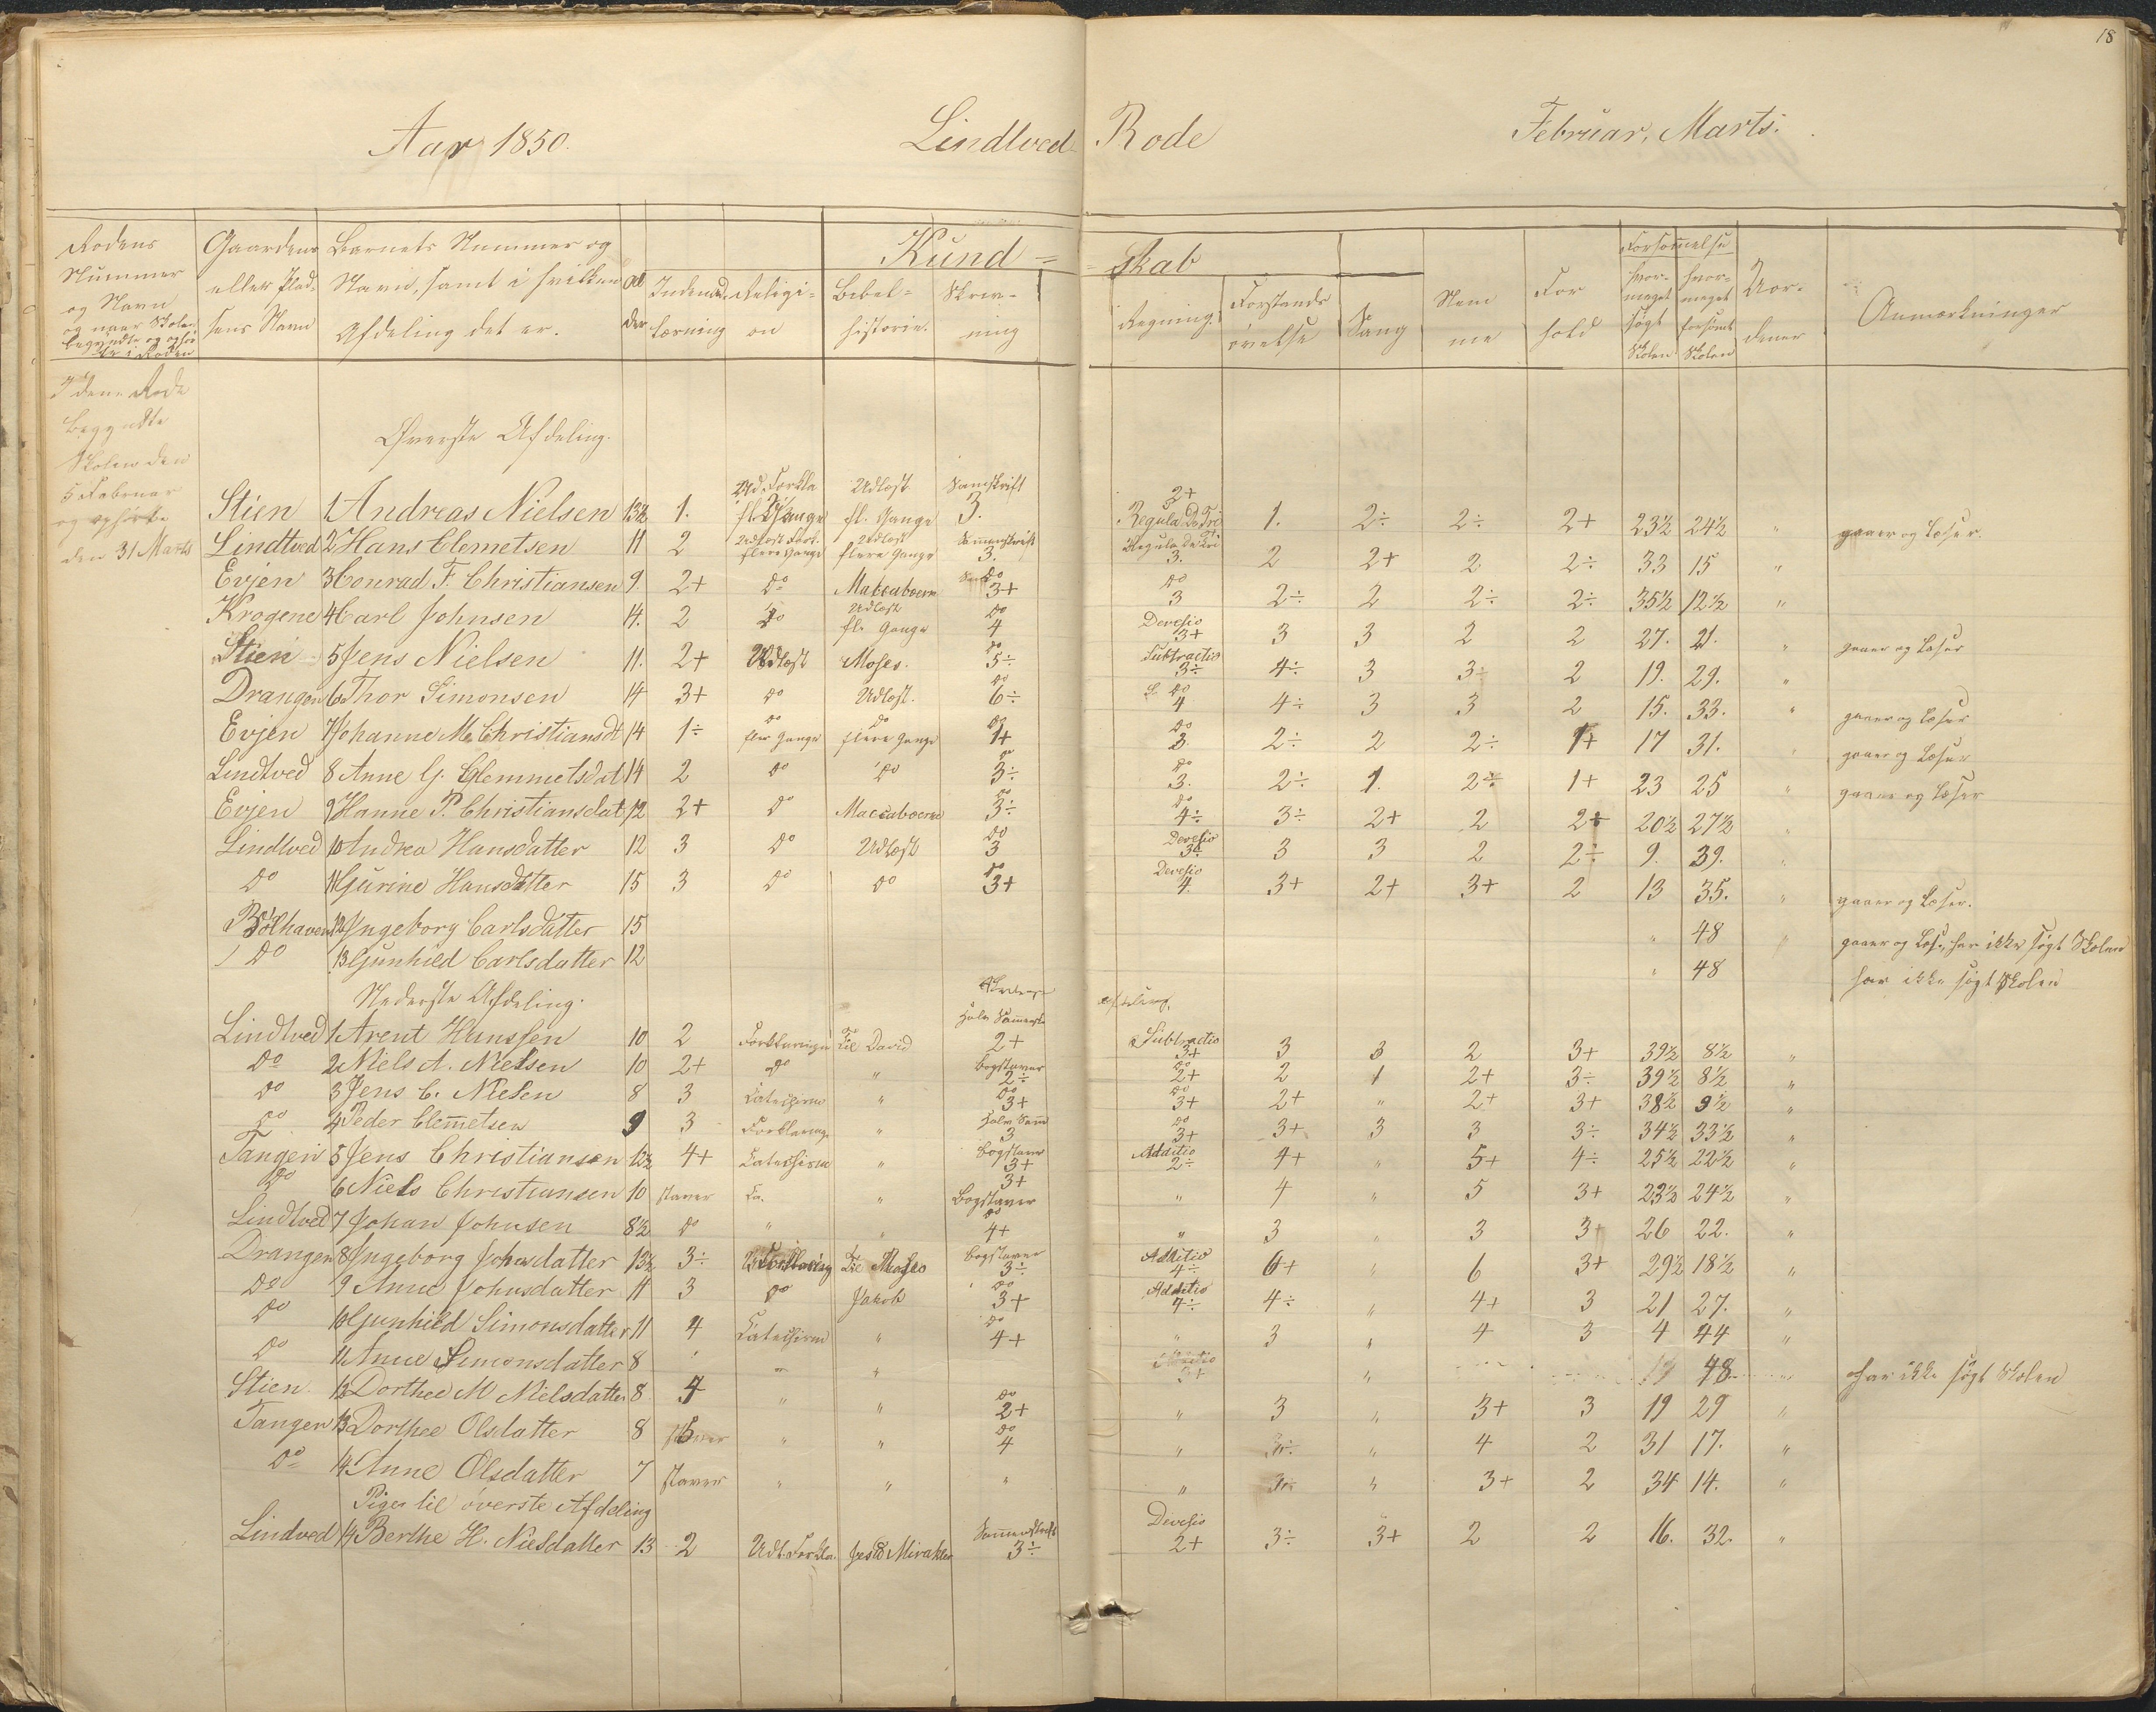 18
Aar 1850. Lindtved Rode Februar, Marts.
Rodens Nummer og Navn og naar Skolen begyndte og ophørte i Roden
Gaardens eller Pladsens Navn
Barnets Nummer og Navn, samt i hvilken Afdeling det er.
Alder
Indenadlæsning
Kundskab
Religion
Bibelhistorie.
Skrivning
Regning.
Forstandsøvelse
Sang
Nemme
Forhold
Forsømmelse
hvormeget søgt Skolen
hvormeget forsømt Skolen
Uordener
Anmærkninger
I denne Rode
begyndte
Skolen den
5 Februar
og ophørte
den 31 Marts
Øverste Afdeling.
Stien 1 Andreas Nielsen 13½ 1. Ud. Forkla fl. Gange Udlæst fl. Gange Samskrift 3. 2+ Regula De Tri 1. 2÷ 2÷ 2+ 23½ 24½ " gaaer og læser.
Lindtved 2 Hans Clemetsen 11 2 Udlæst Fork. flere Gange Udlæst flere Gange Sammenskrift 3. Regula De Tri 3. 2 2+ 2 2÷ 33 15 "
Evjen 3 Conrad F. Christiansen 9. 2+ Do Maccabæerne Do 3+ Do 3 2÷ 2 2÷ 2÷ 35½ 12½ "
Krogene 4 Carl Johnsen 14. 2 Do Udlæst fl. Gange Do 4 Devisio 3+ 3 3 2 2 27. 21. " gaaer og læser
Stien 5 Jens Nielsen 11. 2+ Udlæst Moses. Do 5÷ Subtractio 3÷ 4÷ 3 3÷ 2 19. 29. "
Drangen 6 Thor Simonsen 14 3+ Do Udlæst. Do 6÷ Do 4 4÷ 3 3 2 15. 33. " gaaer og læser
Evjen 7 Johanne M. Christiansdt 14 1÷ Do flere Gange Do flere Gange Do 1+ Do 3 2÷ 2 2÷ 1+ 17 31. " gaaer og læser
Lindtved 8 Anne G. Clemmetsdat 14 2 Do Do Do 3÷ Do 3. 2÷ 1. 2÷ 1+ 23 25 " gaaer og læser
Evjen 9 Hanne P. Christiansdat 12 2+ Do Maccabæerne Do 3÷ Do 4÷ 3÷ 2+ 2 2+ 20½ 27½ "
Lindtved 10 Andrea Hansdatter 12 3 Do Udlæst Do 3 Devisio 3 3 2 2÷ 9. 39. "
Do 11 Gurine Hansdatter 15 3 Do Do Do 3+ Devisio 4. 3+ 2+ 3+ 2 13 35. " gaaer og læser.
Bølhaven 12 Ingeborg Carlsdatter 15 " 48 " gaaer og læs., har ikke søgt Skolen
Do 13 Gunhild Carlsdatter 12 " 48 har ikke søgt Skolen
Nederste Afdeling.
Lindtved 1 Arent Hanssen 10 2 Forklaringen til David 2+ Subtractio 3+ 3 3 2 3+ 39½ 8½ "
Do 2 Niels A. Nielsen 10 2+ Do " Bogstaver 2÷ Do 2+ 2 1 2+ 3÷ 39½ 8½ "
Do 3 Jens C. Nielsen 8 3 Catechism " Do 3+ Do 3+ 2+ " 2+ 3+ 38½ 9½ "
Do 4 Peder Clemetsen 9 3 Forklaringe " 3 Do 3+ 3+ 3 3 3÷ 34½ 33½ "
Tangen 5 Jens Christiansen 12½ 4+ Catechism " Bogstaver 3+ Additio 2÷ 4+ " 5+ 4÷ 25½ 22½ "
Do 6 Niels Christiansen 10 staver Ca. " 3+ Bogstaver " 4 " 5 3+ 23½ 24½ "
Lindtved 7 Johan Johnsen 8½ Do " " Do 4+ " 3 " 3 3+ 26 22. "
Drangen 8 Ingeborg Johnsdatter 13½ 3÷ Forklaring til Moses Bogstaver 3÷ Additio 4÷ 6+ " 6 3+ 29½ 18½ "
Do 9 Anne Johnsdatter 11 3 Do Jakob Do 3+ Additio 4÷ 4÷ " 4+ 3 21 27. "
Do 10 Gunhild Simonsdatter 11 4 Catechism " Do 4+ " 3 " 4 3 4 44 "
Do 11 Anne Simonsdatter 8 " " 48 har ikke søgt Skolen
Stien 12 Dorthee M Nielsdatter 8 4 " " Do 2+ " 3 " 3+ 3 19 29 "
Tangen 13 Dorthee Olsdatter 8 " " Do 4 " " 4 2 31 17. "
Do 14 Anne Olsdatter 7 staver " " " " " 3+ 2 34 14. "
Piger til øverste Afdeling
Lindved 14 Berthe H. Nielsdatter 13 2 Udl. Forkla. Jesu Mirakler Sammenskrift 3÷ Devisio 2+ 3÷ 3+ 2 2 16. 32. "